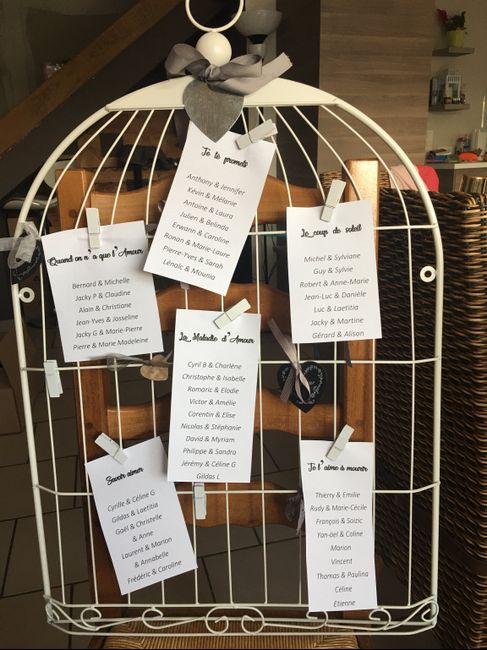 Je te promets
Anthony & Jennifer
Kévin & Mélanie
Antoine & Laura
Julien & Belinda
Erwann & Caroline
Ronan & Marie-Laure
Pierre-Yves & Sarah
Lénaïc & Mounia
Quand on n'a que l'Amour
Bernard & Michelle
Jacky P & Claudine
Alain & Christiane
Jean-Yves & Josseline
Jacky G & Marie-Pierre
Pierre & Marie Madeleine
Le coup de soleil
Michel & Sylviane
Guy & Sylvie
Robert & Anne-Marie
Jean-Luc & Danièle
Luc & Laetitia
Jacky & Martine
Gérard & Alison
La Maladie d'Amour
Cyril B & Charlène
Christophe & Isabelle
Romaric & Elodie
Victor & Amélie
Corentin & Elise
Nicolas & Stéphanie
David & Myriam
Philippe & Sandra
Jérémy & Céline G
Gildas L
Savoir aimer
Cyrille & Céline G
Gildas & Laetitia
Gaël & Christelle
& Anne
Laurent & Marion
& Annabelle
Frédéric & Caroline
Je l'aime à mourir
Thierry & Emilie
Rudy & Marie-Cécile
François & Soizic
Yan-åel & Coline
Marion
Vincent
Thomas & Paulina
Céline
Etienne